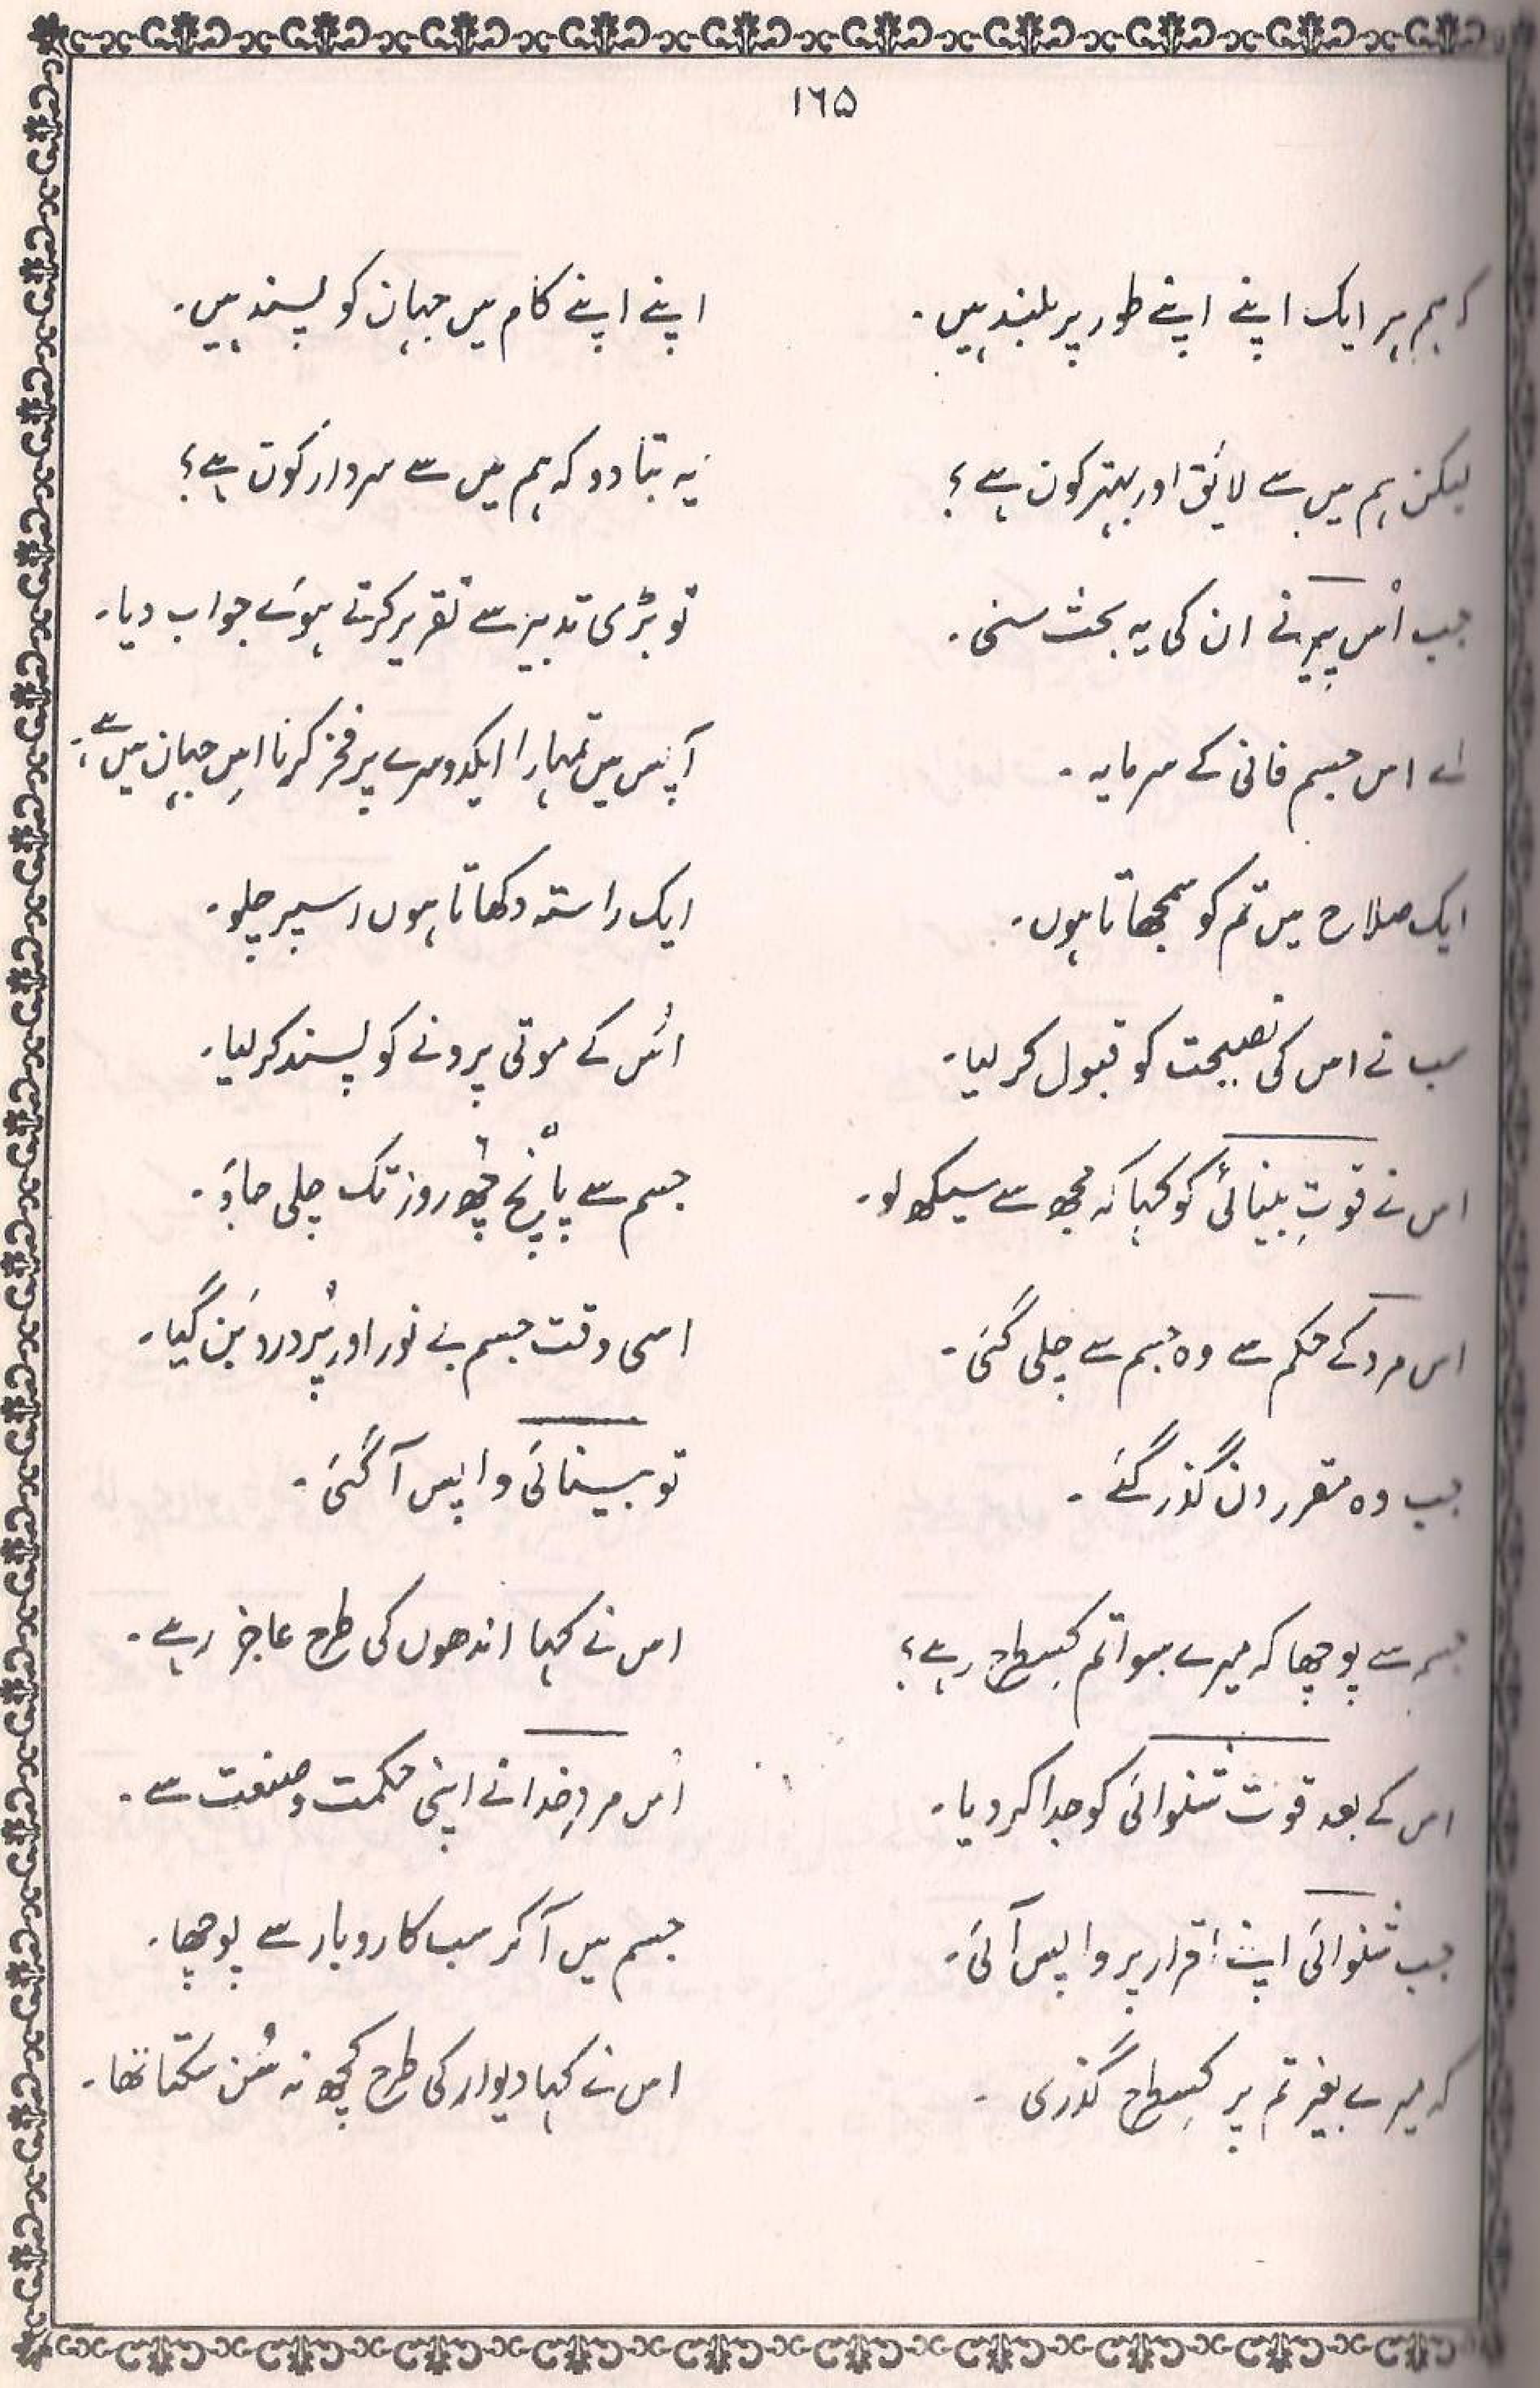 ١٦۵
کہ ہم ہر ایک اپنے اپنے طور پر بلند ہیں۔
اپنے اپنے کام میں جہان کو پسند ہیں۔
لیکن ہم میں سے لائق اور بہتر کون ہے؟
یہ بتا دو کہ ہم میں سے سردار کون ہے؟
جب اُس پیر نے ان کی یہ بحث سنی۔
تو بڑی تدبیر سے تقریر کرتے ہوئے جواب دیا۔
اے اس جسم فانی کے سرمایہ۔
آپس میں تمہارا ایکدوسرے پر فخر کرنا اِس جہان میں ہے۔
ایک صلاح میں تم کو سمجھاتا ہوں۔
ایک راستہ دکھاتا ہوں اسپر چلو۔
سب نے اس کی نصیحت کو قبول کر لیا۔
اُس کے موتی پرونے کو پسند کر لیا۔
اس نے قوتِ بینائی کو کہا کہ مجھ سے سیکھ لو۔
جسم سے پانچ چھ روز تک چلی جاؤ۔
اس مرد کے حکم سے وہ جسم سے چلی گئی۔
اسی وقت جسم بے نور اور پُر درد بَن گیا۔
جب وہ مقرر دن گذر گئے ۔
تو بینائی واپس آ گئی۔
جسم سے پوچھا کہ میرے سوا تم کِسطرح رہے؟
اس نے کہا اندھوں کی طرح عاجز رہے۔
اس کے بعد قوت شنوائی کو جدا کر دیا۔
اُس مردِ خدا نے اپنی حکمت و صنعت سے۔
جب شنوائی اپنے اقرار پر واپس آئی۔
جسم میں آ کر سب کاروبار سے پوچھا۔
کہ میرے بغیر تم پر کِسطرح گذری ۔
اس نے کہا دیوار کی طرح کچھ نہ سُن سکتا تھا۔